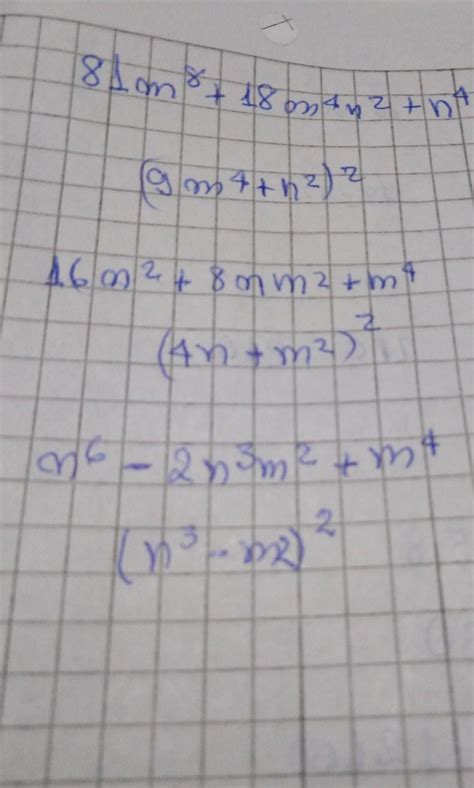 81m⁸ + 18m⁴n² + n⁴
(9m⁴ + n²)²
16n² + 8nm² + m⁴
(4n + m²)²
n⁶ - 2n³m² + m⁴
(n³ - m2)²